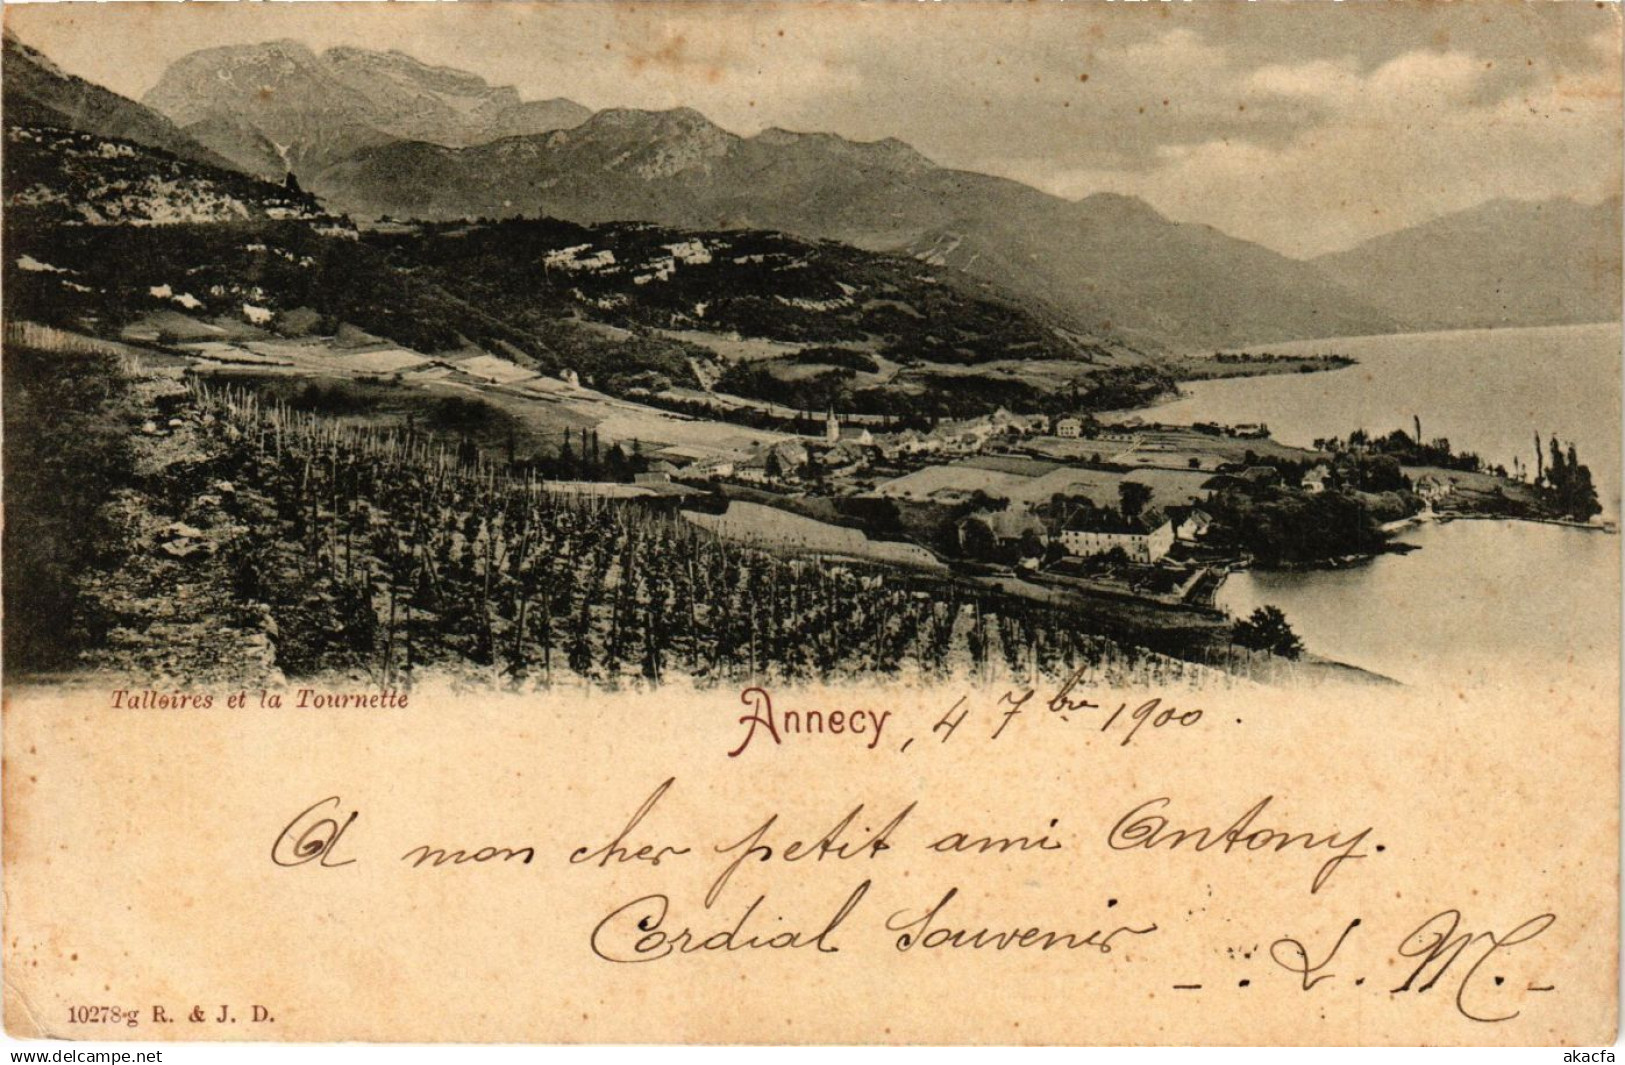 Talloires et la Tournette
Annecy, 4 7bre 1900.
A mon cher petit ami Antony.
Cordial Souvenir
- . L. M. -
10278-g R. & J. D.
www.delcampe.net
akacfa